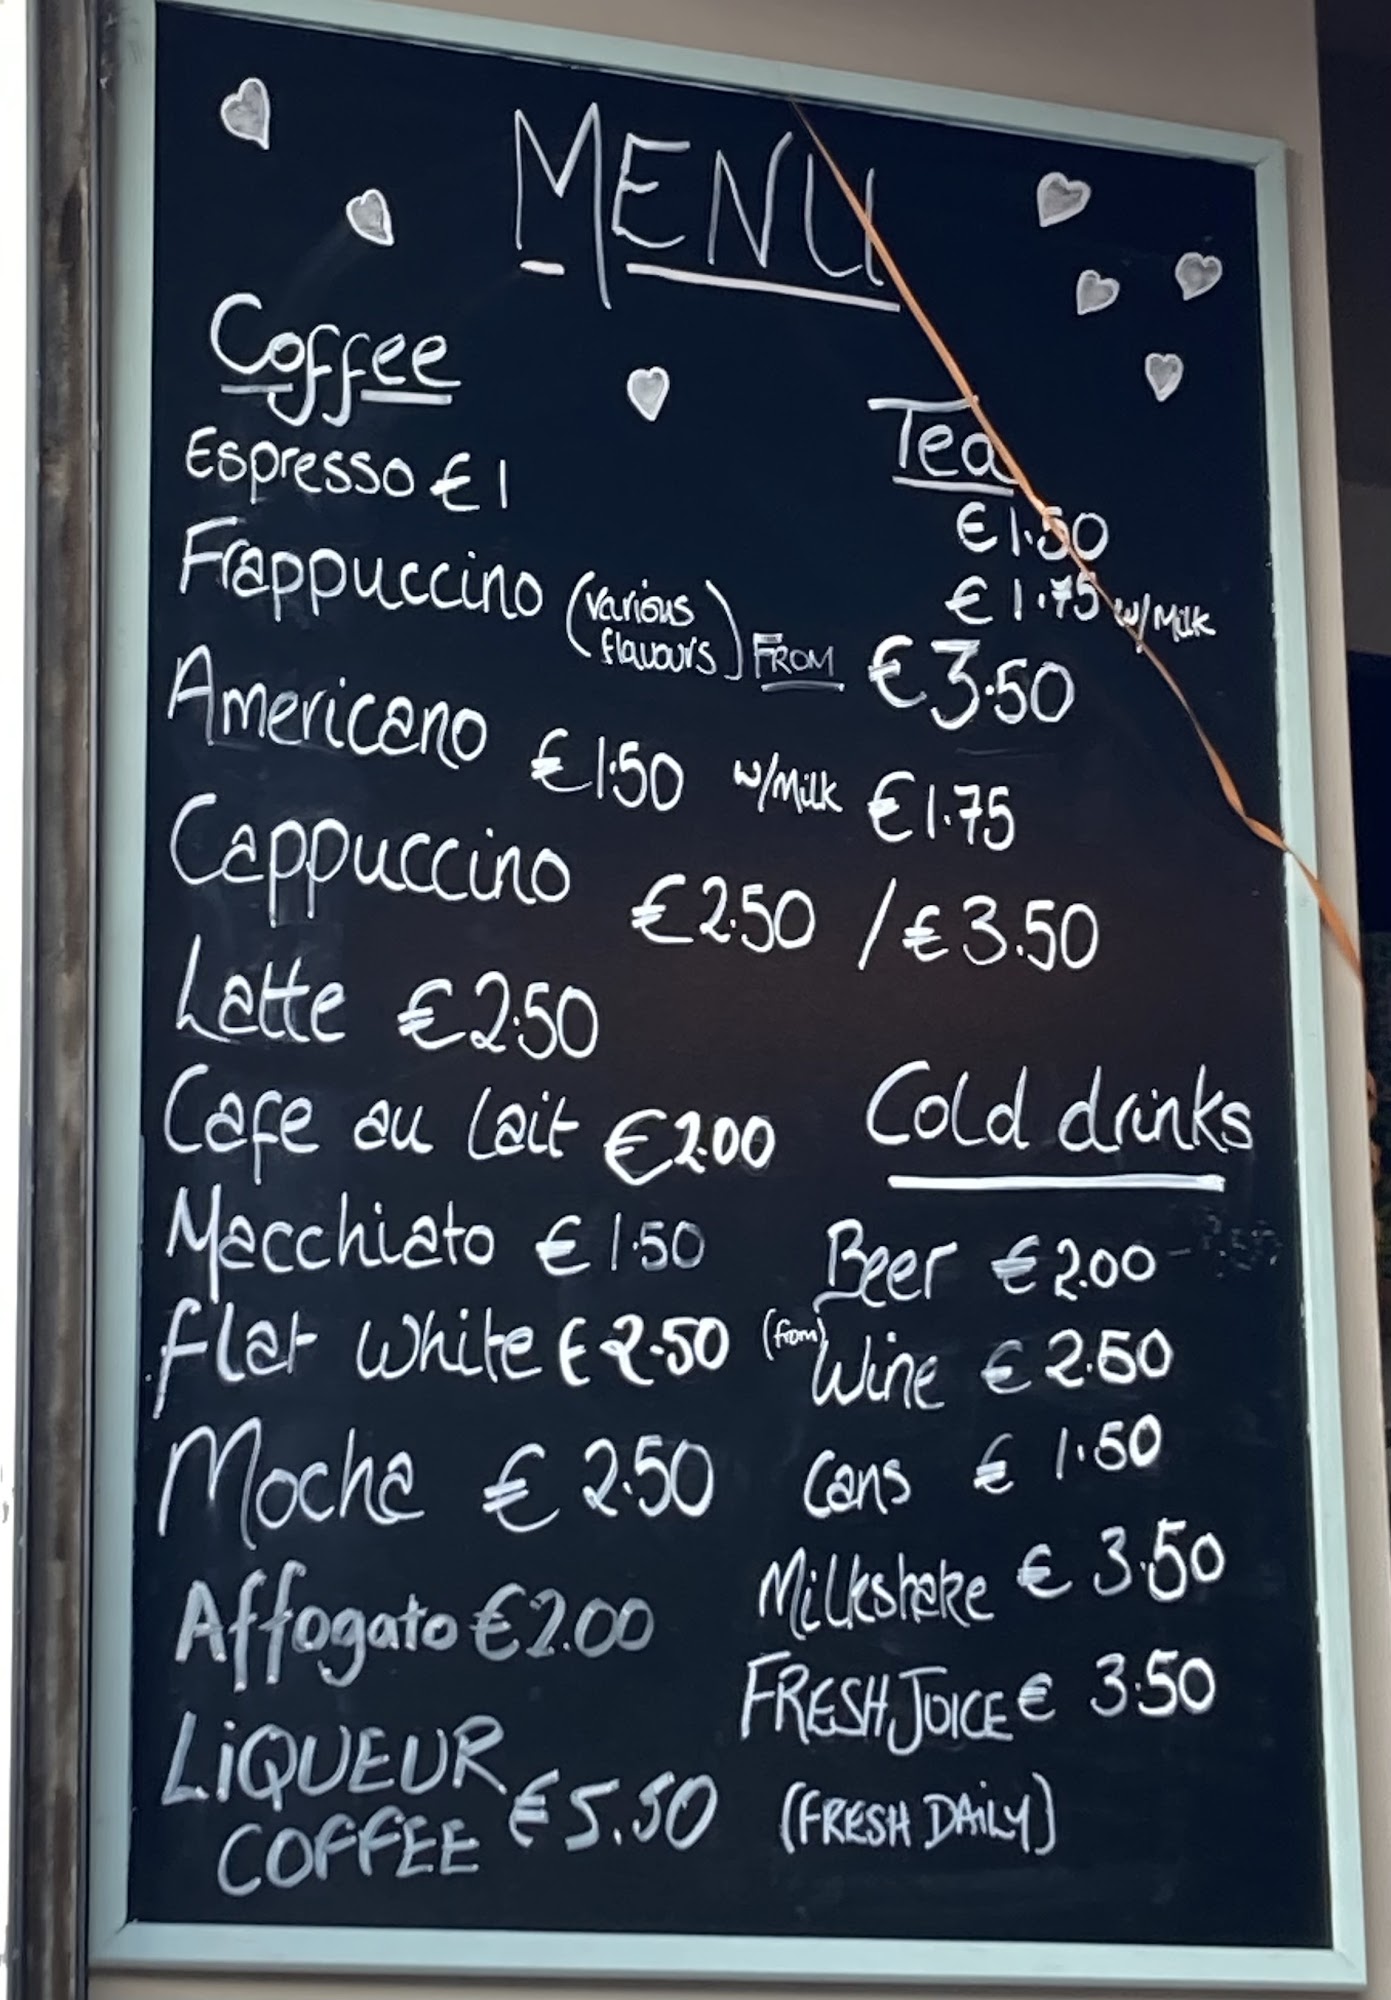 MENU
Coffee
Espresso €1
Frappuccino (various flavours) FROM €3.50
Americano €1.50 w/Milk €1.75
Cappuccino €2.50 / €3.50
Latte €2.50
Cafe au lait €2.00
Macchiato €1.50
Flat white €2.50
Mocha €2.50
Affogato €2.00
LiQUEUR
COFFEE €5.50
Tea
€1.50
€1.75 w/Milk
Cold drinks
Beer €2.00
(from) Wine €2.50
Cans €1.50
Milkshake €3.50
FRESH JUICE €3.50
(FRESH DAiLY)